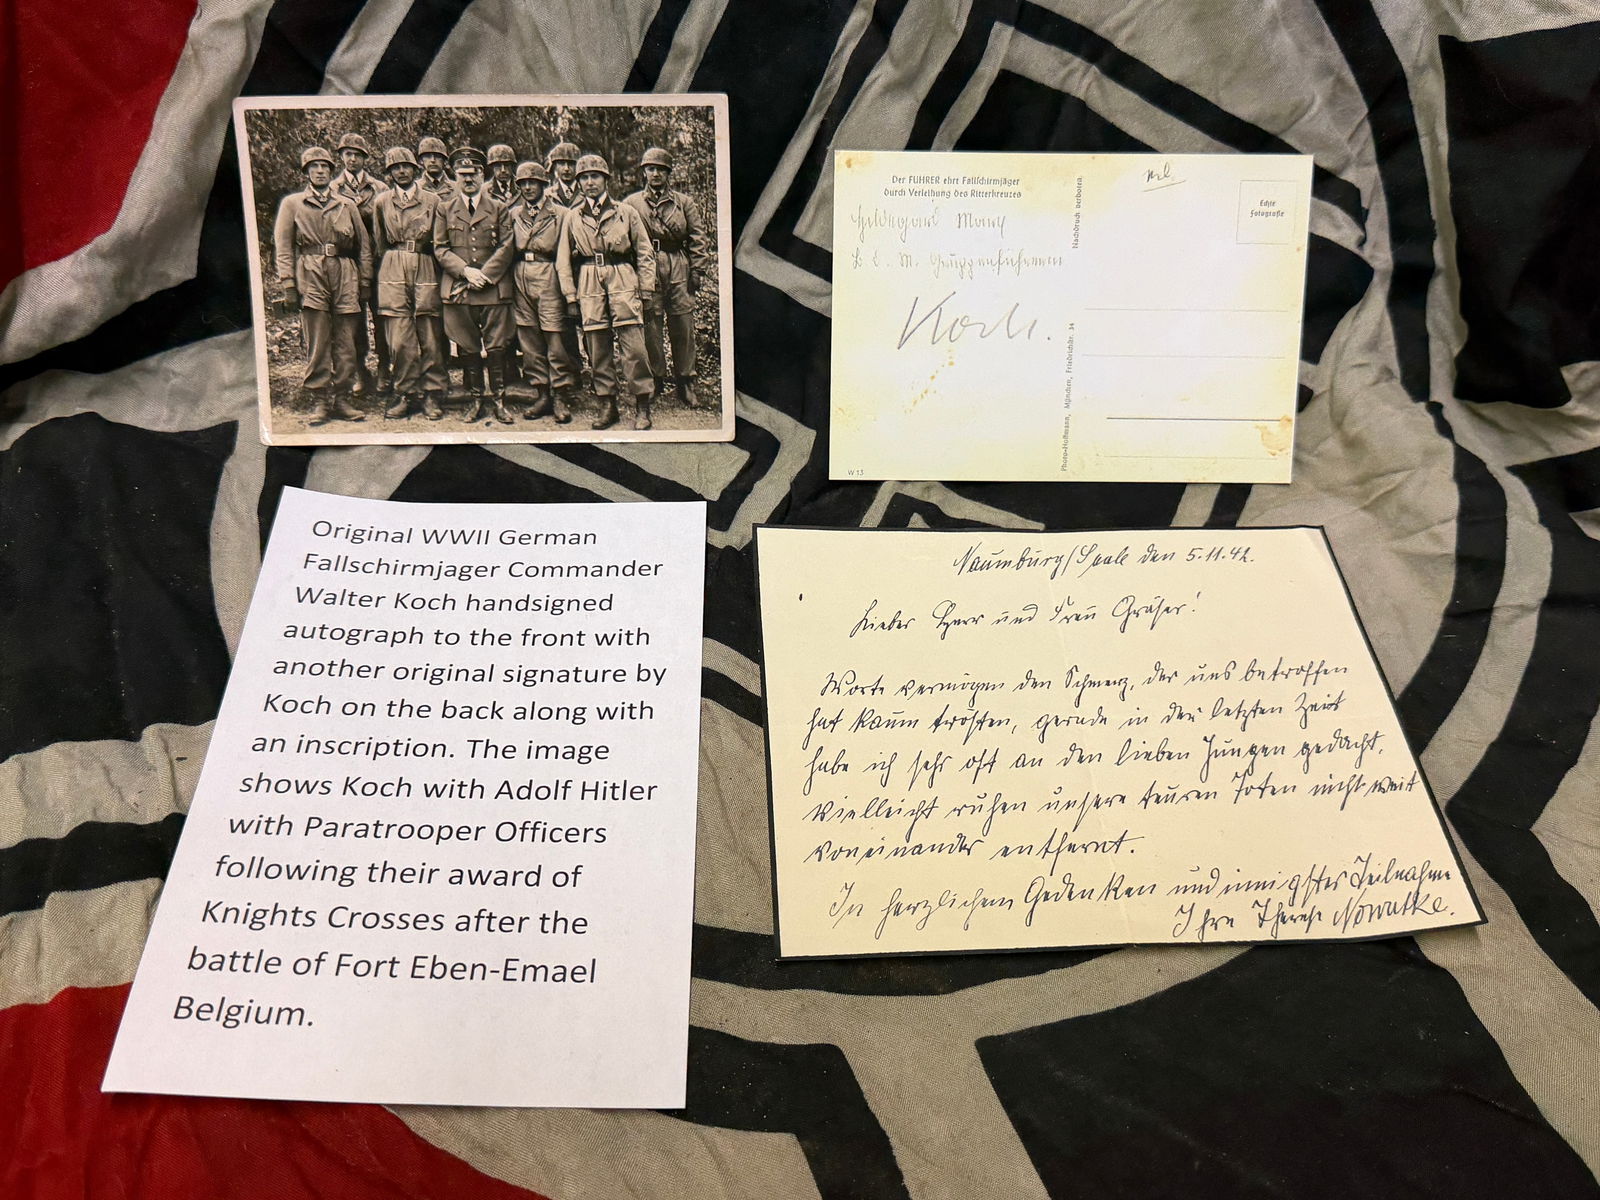 Der FÜHRER ehrt Fallschirmjäger
durch Verleihung des Ritterkreuzes
Hildegard
B. D. M. Gruppenführerin
Koch.
W 13
Nachdruck verboten.
Photo-Hoffmann, München, Friedrichstr. 34
Echte
Fotografie
Original WWII German
Fallschirmjager Commander
Walter Koch handsigned
autograph to the front with
another original signature by
Koch on the back along with
an inscription. The image
shows Koch with Adolf Hitler
with Paratrooper Officers
following their award of
Knights Crosses after the
battle of Fort Eben-Emael
Belgium.
Naumburg/Saale den 5.11.42.
Lieber Herr und Frau Gräser!
Worte vermögen den Schmerz, der uns betroffen
hat kaum trösten, gerade in der letzten Zeit
habe ich sehr oft an den lieben Jungen gedacht.
Vielleicht ruhen unsere teuren Toten nicht weit
voneinander entfernt.
In herzlichem Gedenken und innigster Teilnahme
Ihre Therese Nowatke.